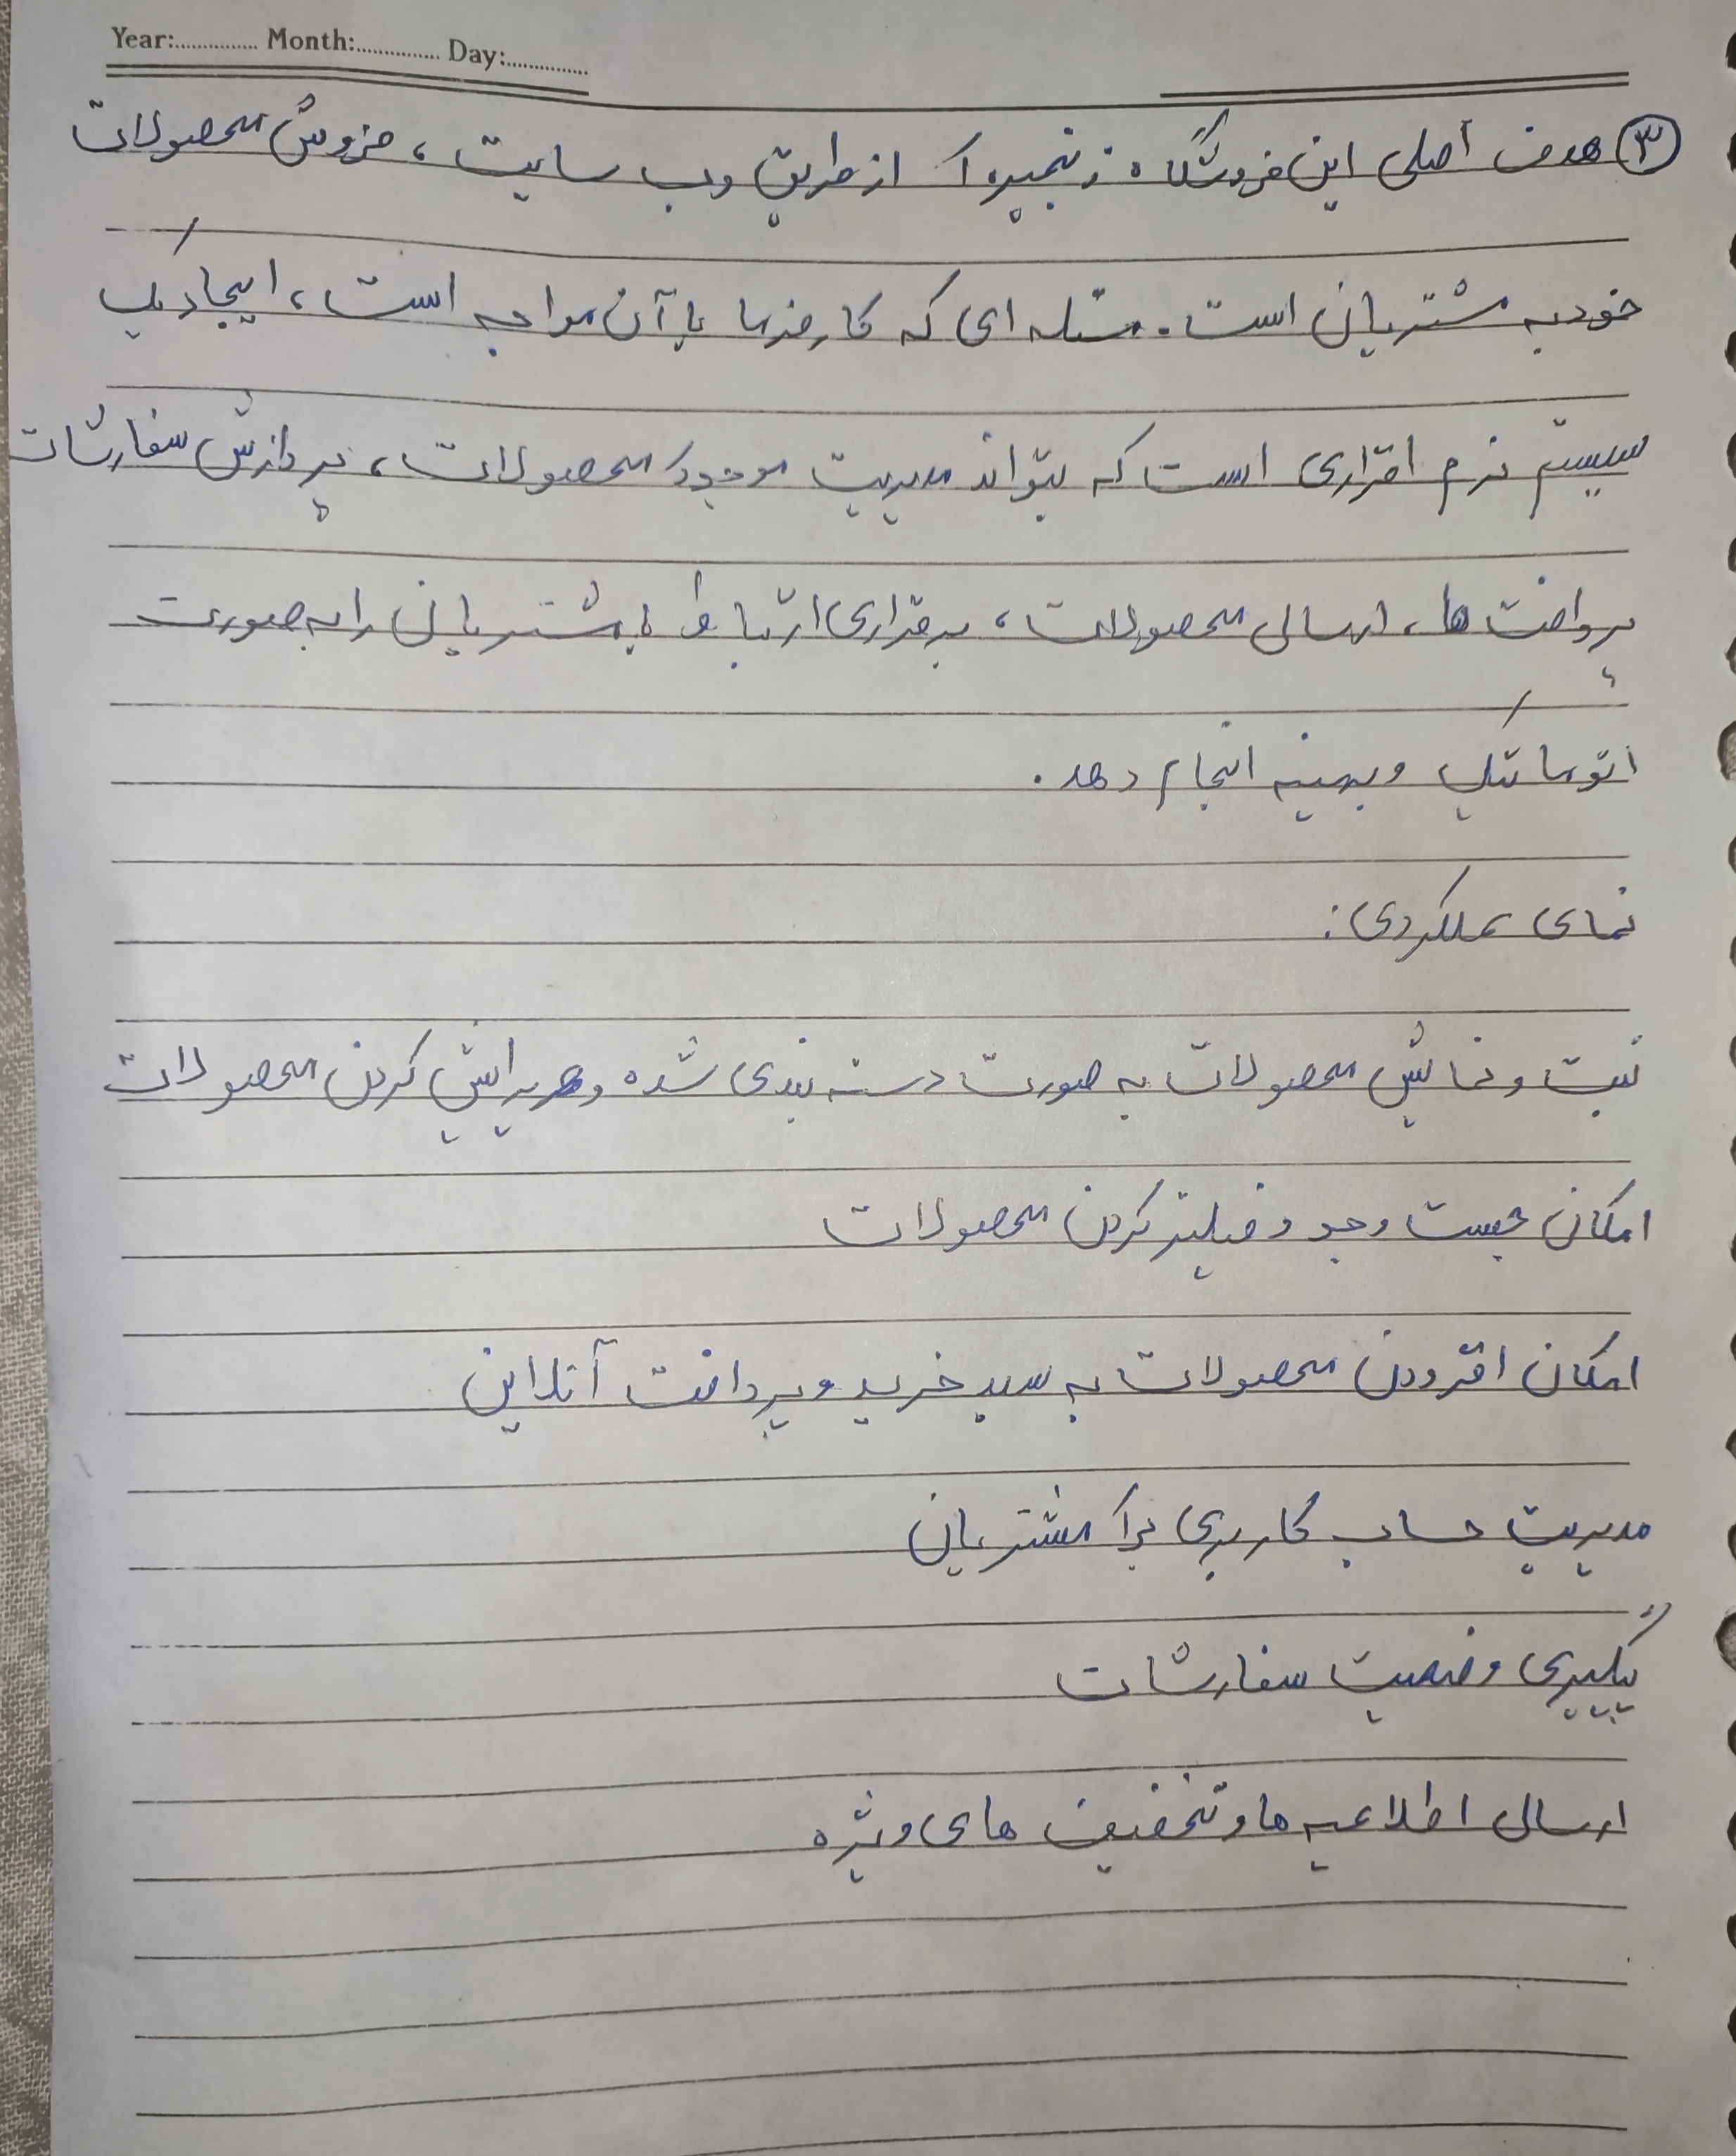 Year:............... Month:............... Day:...............
③ هدف اصلی این فروشگاه زنجیره ای از طریق وب سایت ، فروش محصولات
خود به مشتریان است . مسئله ای که کارفرما با آن مواجه است ، ایجاد یک
سیستم نرم افزاری است که بتواند مدیریت موجودی محصولات ، پردازش سفارشات
پرداخت ها ، ارسال محصولات ، برقراری ارتباط با مشتریان را به صورت
اتوماتیک و بهینه انجام دهد .
نمای عملکردی :
ثبت و نمایش محصولات به صورت دسته بندی شده و ویرایش کردن محصولات
امکان جست و جو و فیلتر کردن محصولات
امکان افزودن محصولات به سبد خرید و پرداخت آنلاین
مدیریت حساب کاربری برای مشتریان
پیگیری وضعیت سفارشات
ارسال اطلاعیه ها و تخفیف های ویژه